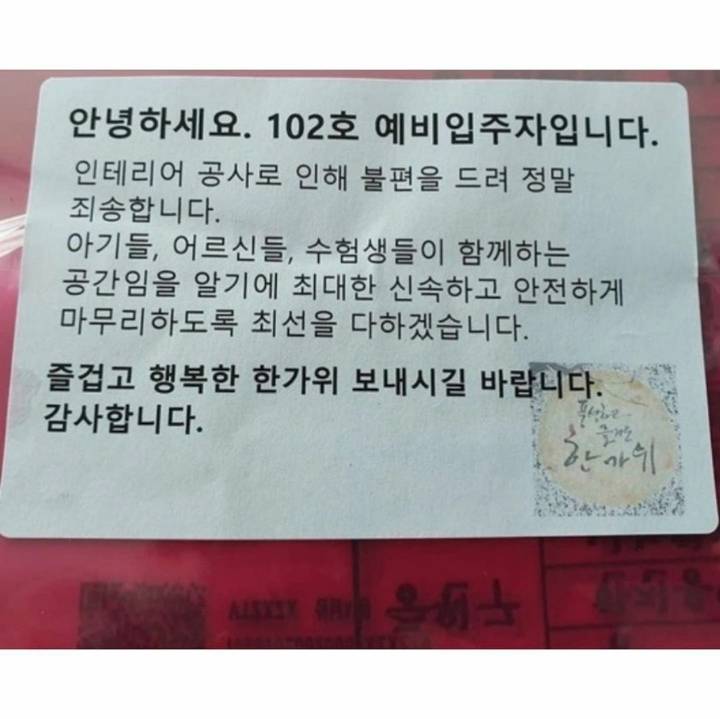 안녕하세요. 102호 예비입주자입니다.
인테리어 공사로 인해 불편을 드려 정말
죄송합니다.
아기들, 어르신들, 수험생들이 함께하는
공간임을 알기에 최대한 신속하고 안전하게
마무리하도록 최선을 다하겠습니다.
즐겁고 행복한 한가위 보내시길 바랍니다.
감사합니다.
풍성하고
즐거운
한가위